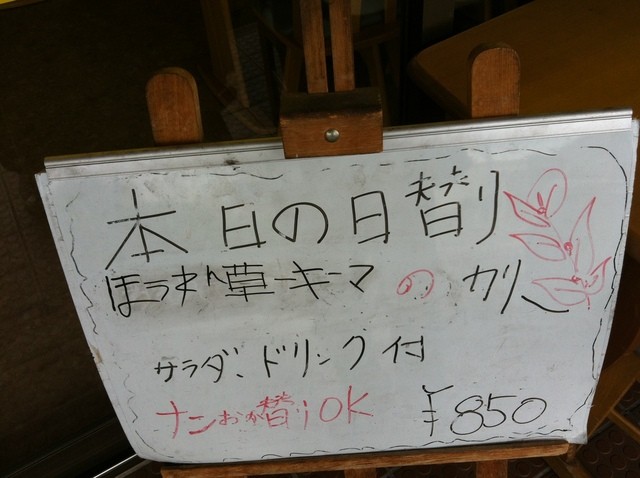 本日の日替り
ほうれん草キーマのカリー
サラダ、ドリンク付
ナンおか替りOK ¥850